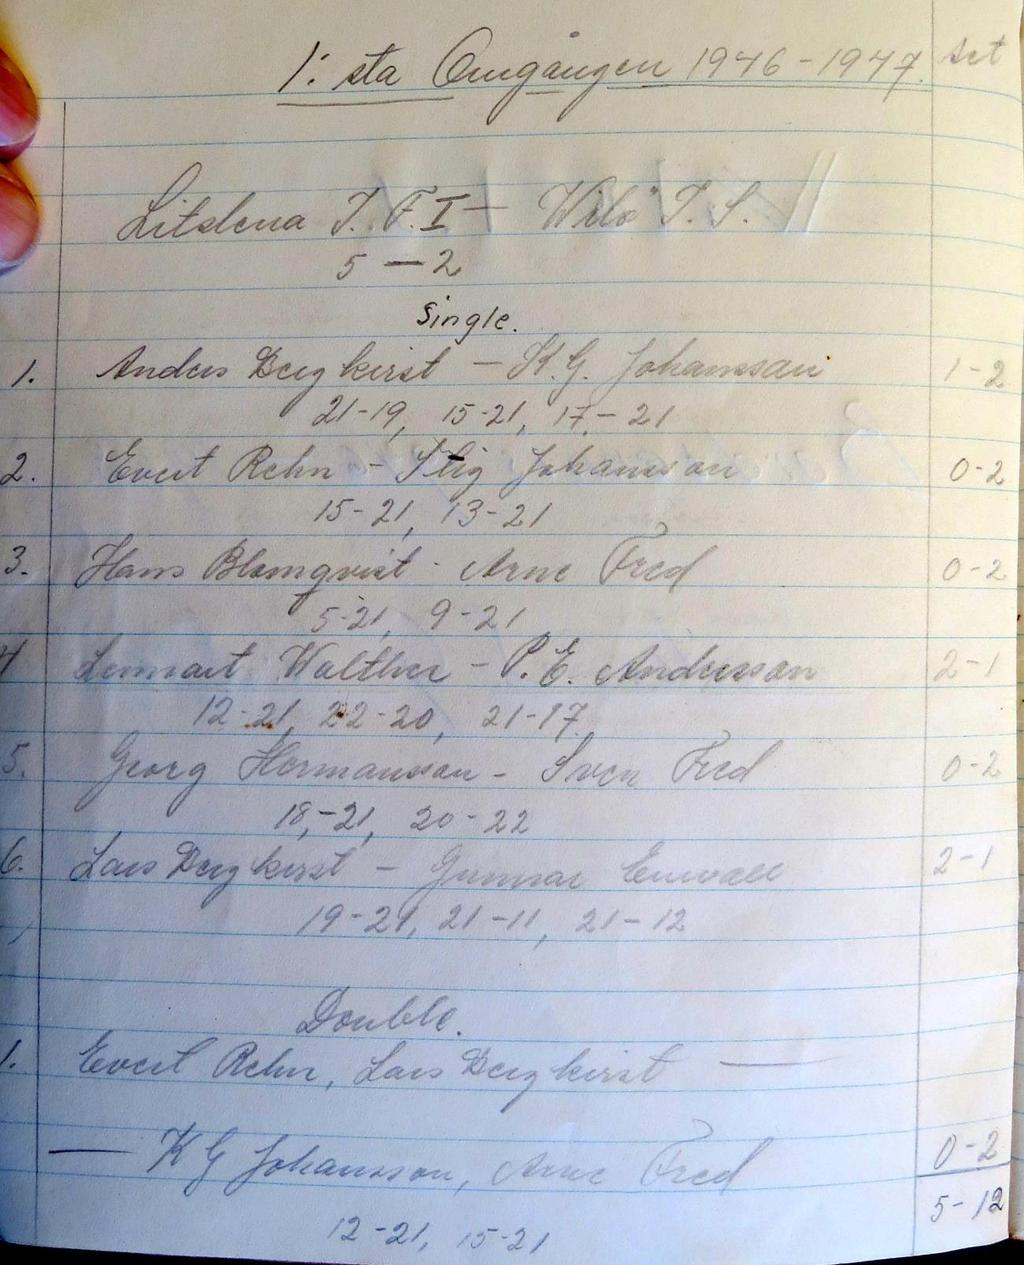 1:sta Omgången 1946-1947. Set
Litslena I. F. I — Wila I. S.
5 — 2
Single.
1. Anders Bergkvist - K.G. Johansson 1-2
21-19, 15-21, 17-21
2. Evert Rehn - Stig Johansson 0-2
15-21, 13-21
3. Hans Blomqvist - Arne Fred 0-2
5-21, 9-21
4 Lennart Walther - P.E. Andersson 2-1
12-21, 22-20, 21-17
5. Georg Hermansson - Sven Fred 0-2
18-21, 20-22
6. Lars Bergkvist - Gunnar Enwall 2-1
19-21, 21-11, 21-12
Double.
1. Evert Rehn, Lars Bergkvist —
— K G Johansson, Arne Fred 0-2
12-21, 15-21 5-12